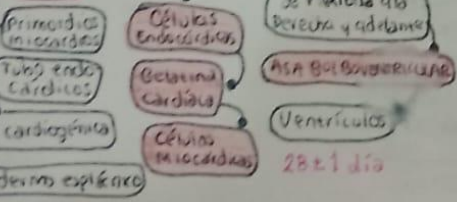 Primordios
miocardios
Tubo endo
cárdicos
cardiogénica
dermo esplácnico
Células
Endocárdicas
Gelatina
cardiaca
Células
miocárdicas
Derecha y adelante
ASA BULBOVENTRICULAR
Ventrículos
28 ± 1 día